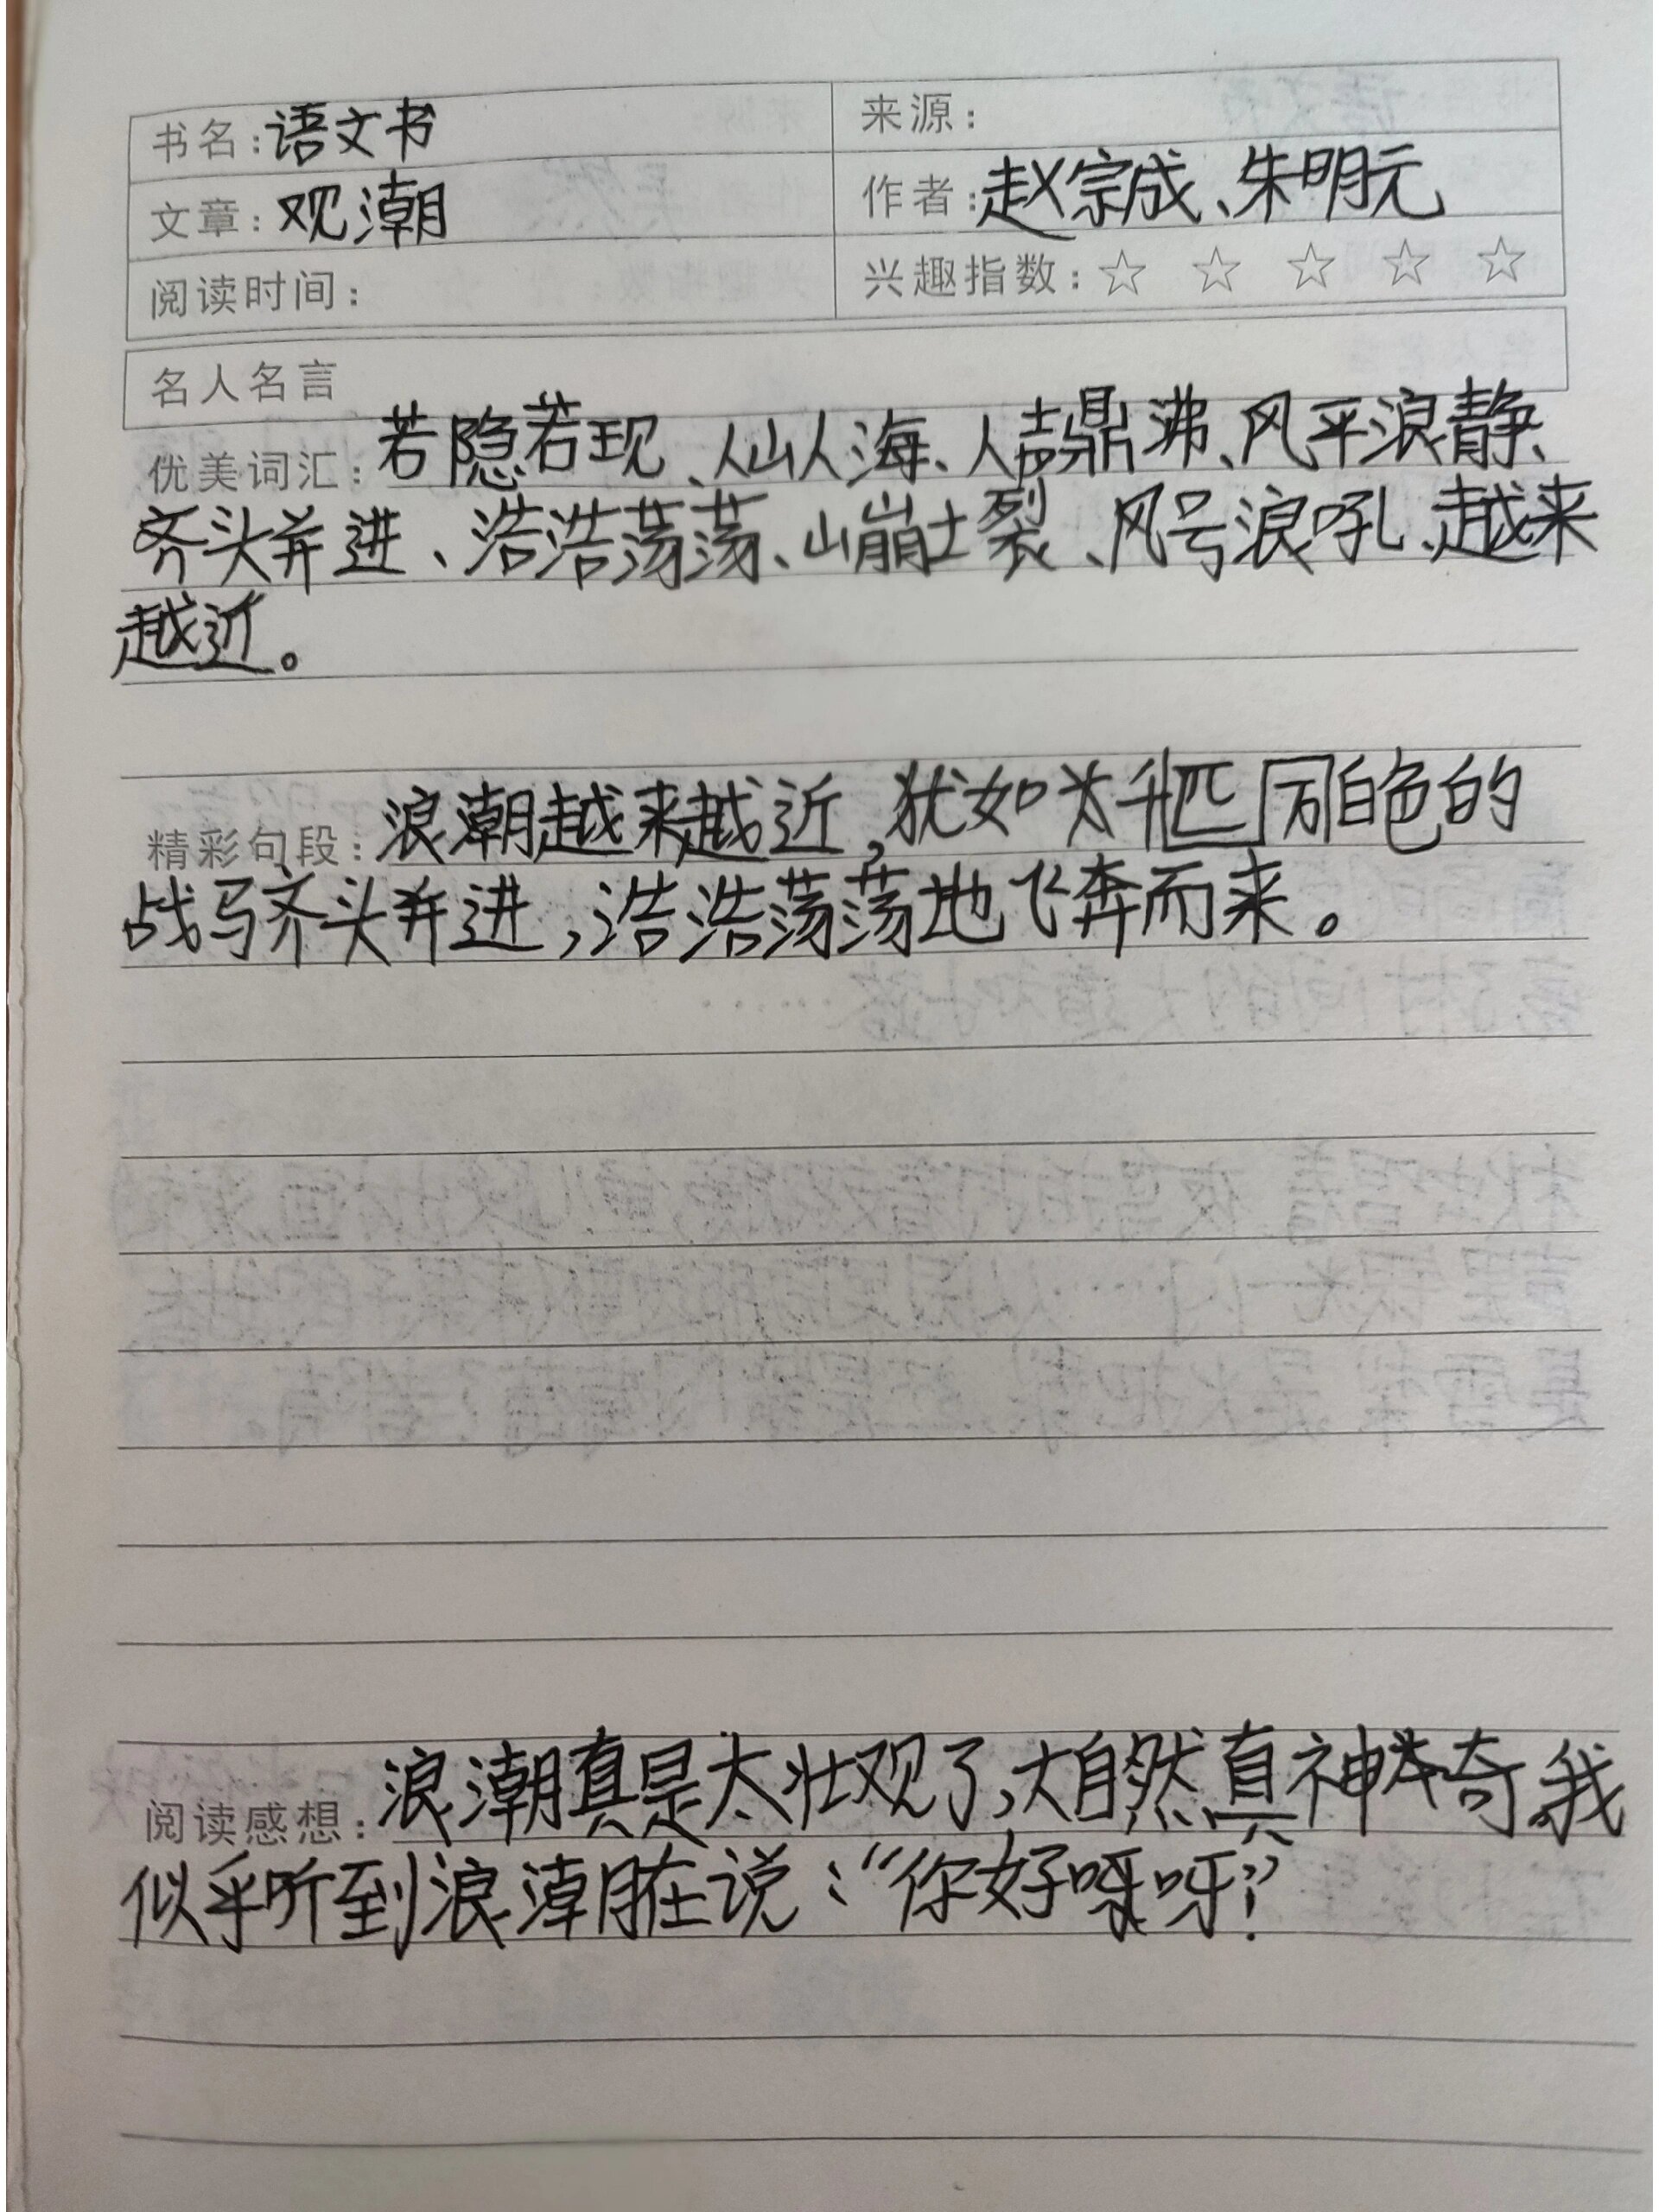 书名：语文书 来源：
文章：观潮 作者：赵宗成、朱明元
阅读时间： 兴趣指数：☆ ☆ ☆ ☆ ☆
名人名言
优美词汇：若隐若现、人山人海、人声鼎沸、风平浪静、
齐头并进、浩浩荡荡、山崩土裂、风号浪吼、越来
越近。
精彩句段：浪潮越来越近，犹如 白色的
战马齐头并进，浩浩荡荡地飞奔而来。
阅读感想：浪潮真是太壮观了，大自然真神奇，我
似乎听到浪潮在说：“你好呀呀！”